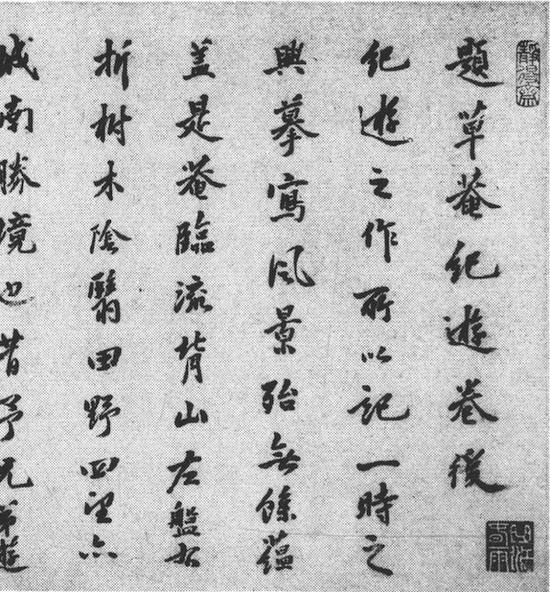 題草菴紀遊卷後
紀遊之作所以記一時之
興摹寫風景殆無餘蘊
蓋是菴臨流背山左盤右
折樹木陰翳田野四望亦
城南勝境也昔予兄弟遊